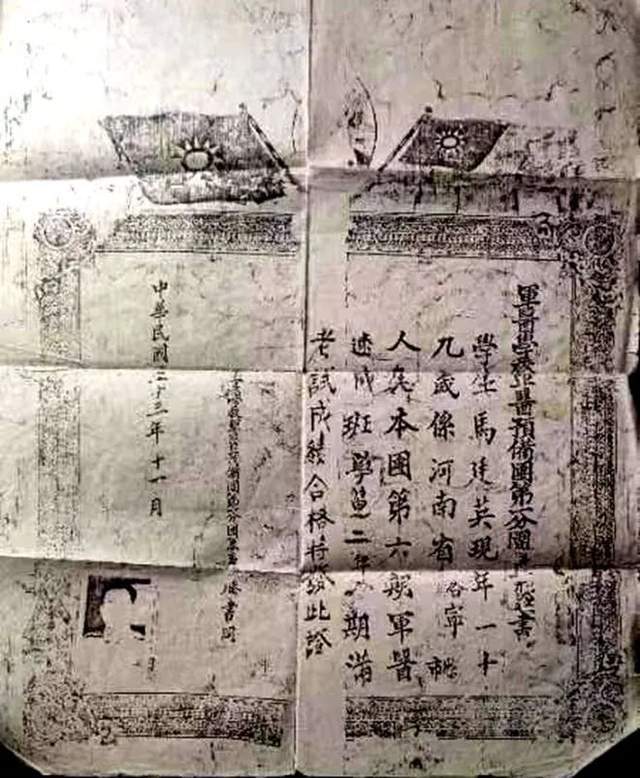 軍醫學校軍醫預備團第一分團證書
學生馬廷英現年一十
九歲係河南省寧
人在本團第六期軍醫
速成班學業二年期滿
考試成績合格特發此證
預備團第分團
中華民國三十三年十一月